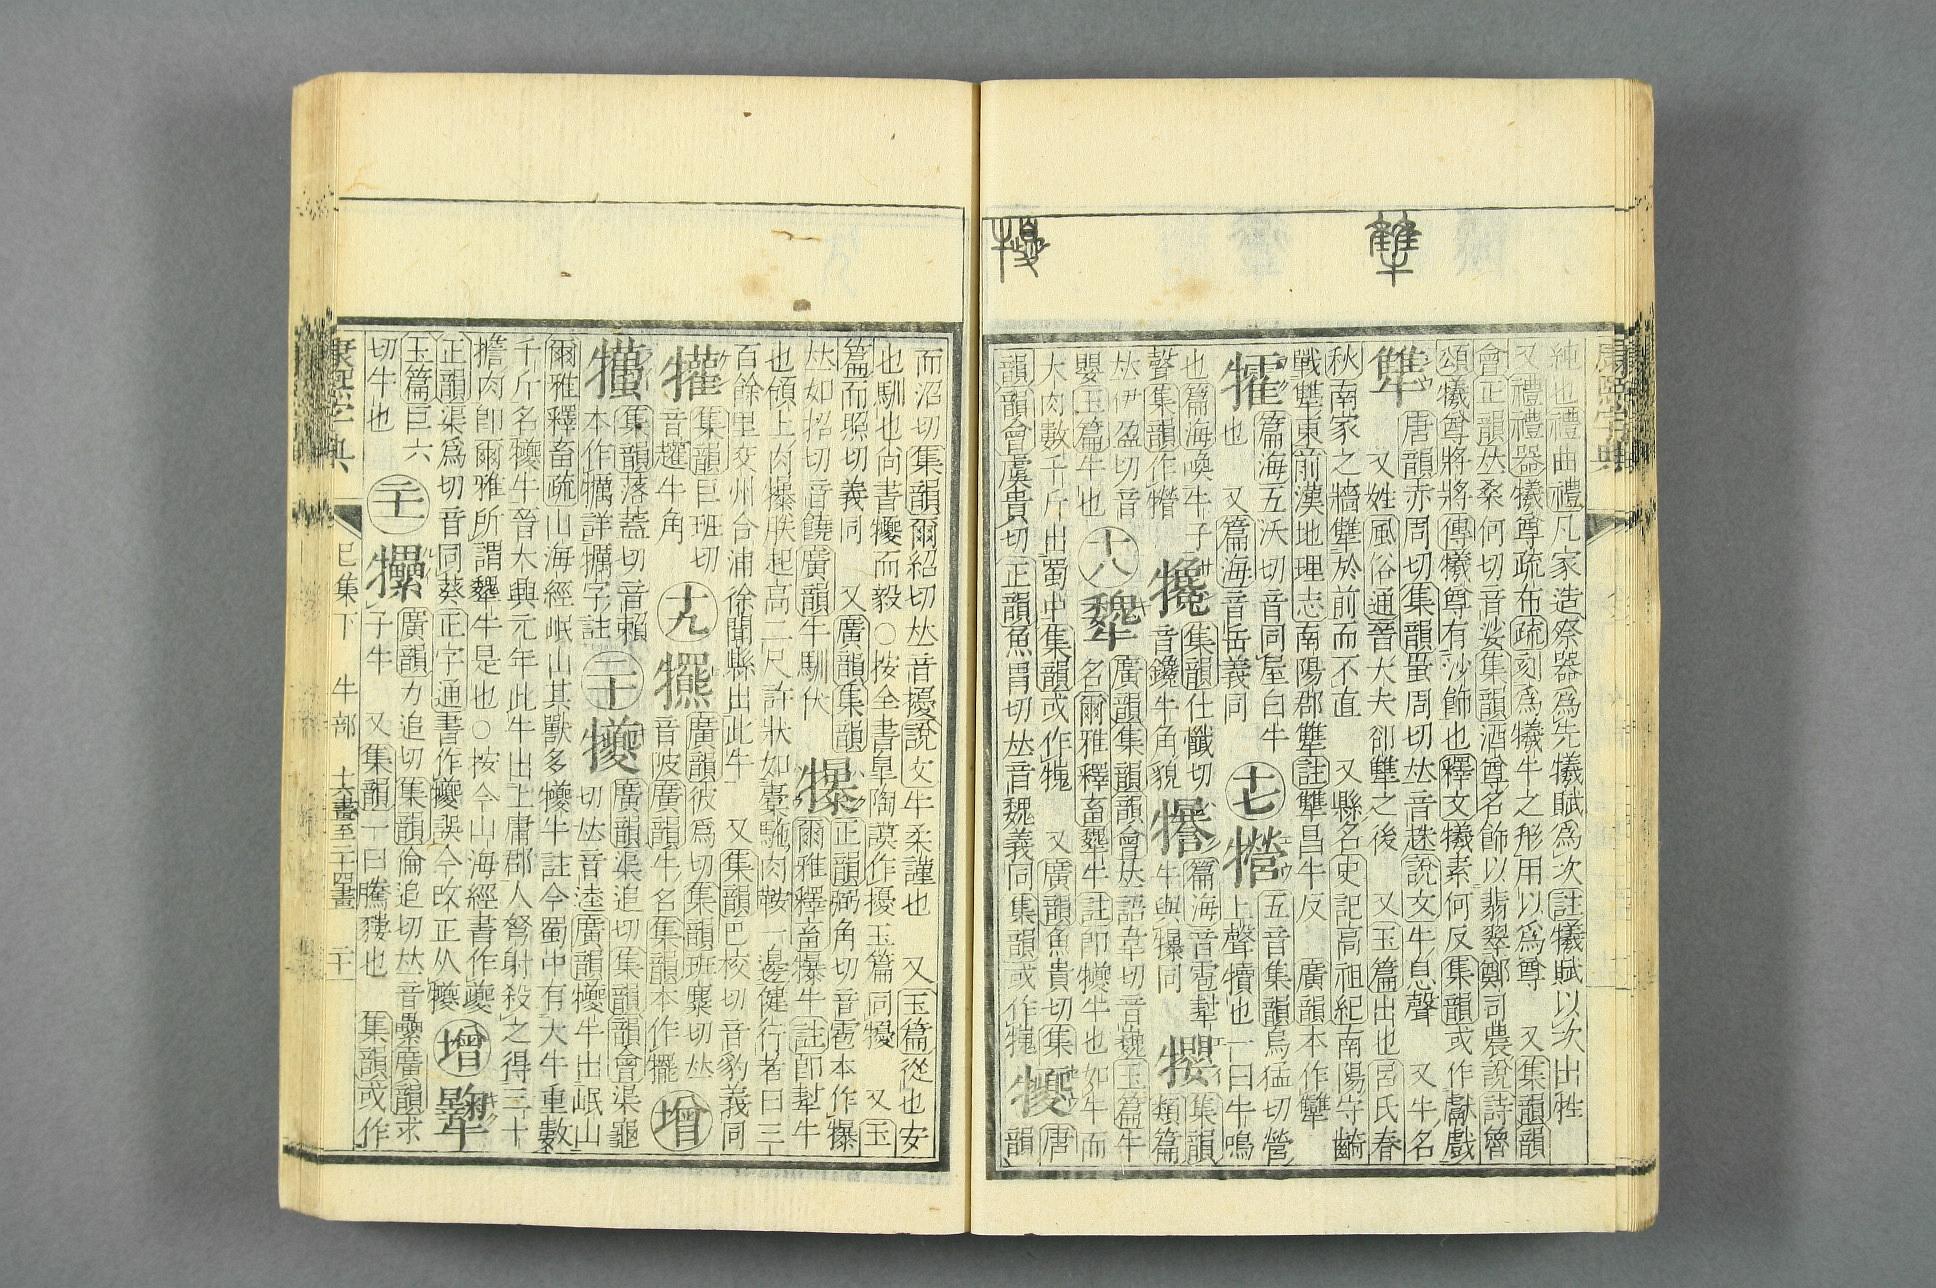 犨
㹛
康熙字典
純也禮曲禮凡家造祭器爲先犧賦爲次註犧賦以次出牲
又禮禮器犧尊疏布疏刻爲犧牛之形用以爲尊 又集韻韻
會正韻𠀤桑何切音娑集韻酒尊名飾以翡翠鄭司農說詩魯
頌犧尊將將傳犧尊有沙飾也釋文犧素何反集韻或作獻戲
犨 唐韻赤周切集韻蚩周切𠀤音赿說文牛息聲 又牛名
又姓風俗通晉大夫郤犨之後 又玉篇出也呂氏春
秋南家之牆犨於前而不直 又縣名史記高祖紀南陽守齮
戰犨東前漢地理志南陽郡犨註犨昌牛反 廣韻本作犫
篇海五沃切音同屋白牛 十七 五音集韻烏猛切營
也 又篇海音岳義同 上聲犢也一曰牛鳴
也篇海喚牛子 集韻仕懺切 篇海音雹犎 集韻
聲集韻作㸑 音鑱牛角貌 牛與犦同 類篇
𠀤伊盈切音 十八 犩 廣韻集韻韻會𠀤語韋切音巍玉篇牛
嬰玉篇牛也 名爾雅釋畜犩牛註卽犪牛也如牛而
大肉數千斤出蜀中集韻或作犤 又廣韻魚貴切集 犪 唐
韻韻會虞貴切正韻魚胃切𠀤音魏義同集韻或作 韻
而沼切集韻爾紹切𠀤音擾說文牛柔謹也 又玉篇從也安
也馴也尚書犪而毅○按全書皐陶謨作擾玉篇同㹛 又玉
篇而照切義同 又廣韻集韻 犦 正韻弼角切音雹本作犦
𠀤如招切音饒廣韻牛馴伏 爾雅釋畜犦牛註卽犎牛
也領上肉犦胅起高二尺許狀如橐駝肉鞍一邊健行者日三
百餘里交州合浦徐聞縣出此牛 又集韻巴校切音豹義同
㹕 集韻巨班切 十九 犤 廣韻彼爲切集韻班糜切𠀤 增
音趯牛角 音陂廣韻牛名集韻本作犤
集韻落蓋切音賴 二十 犪 廣韻渠追切集韻韻會渠龜
本作犡詳犡字註 切𠀤音逵廣韻犪牛出岷山
爾雅釋畜疏山海經岷山其獸多犪牛註今蜀中有大牛重數
千斤名犪牛晉大興元年此牛出上庸郡人弩射殺之得三十
擔肉卽爾雅所謂犩牛是也○按今山海經書作夔 增
正韻渠爲切音同葵正字通書作犪誤今改正从犪
玉篇巨六 二十一 㹎 廣韻力追切集韻倫追切𠀤音纍廣韻求
切牛也 子牛 又集韻一曰騰㹎也 集韻或作
康熙字典 巳集下 牛部 十六畫至二十四畫 二十